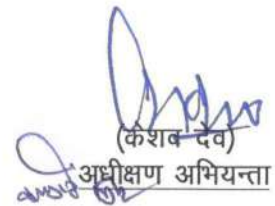 (केशव देव)
अधीक्षण अभियन्ता